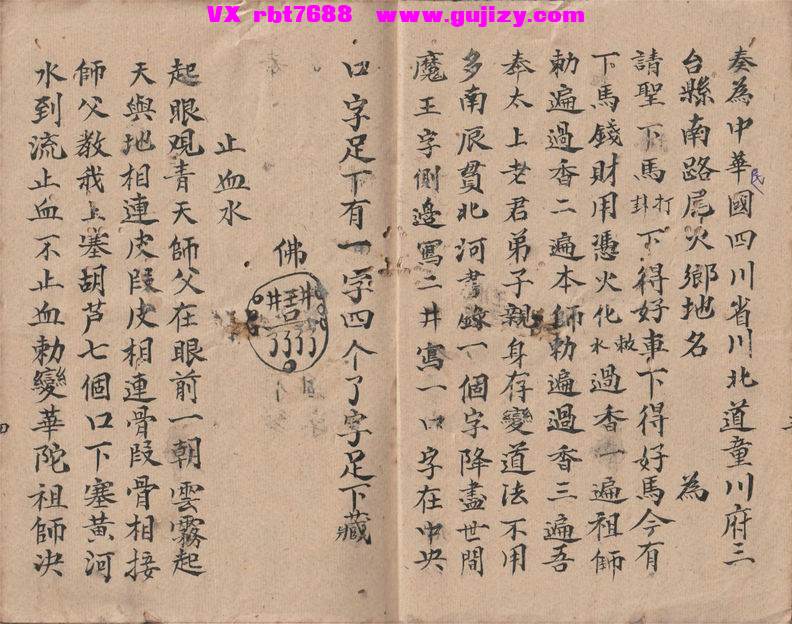 VX rbt7688 www.gujizy.com
奏為中華民國四川省川北道童川府三
台縣南路尾火鄉地名 為
請聖下馬打卦下得好車下得好馬今有
下馬錢財用憑火化水敕過香一遍祖師
勅遍過香二遍本師勅遍過香三遍吾
奉太上老君弟子親身存變道法不用
多南辰貫北河書錄一個字降盡世間
魔王字側邊寫二井寫一口字在中央
口字足下有一字四个了字足下藏
佛
井 井
了了了了
止血水
起眼观青天師父在眼前一朝雲霧起
天與地相連皮段皮相連骨段骨相接
師父教我上塞胡芦七個口下塞黃河
水到流止血不止血勅變華陀祖師決
四